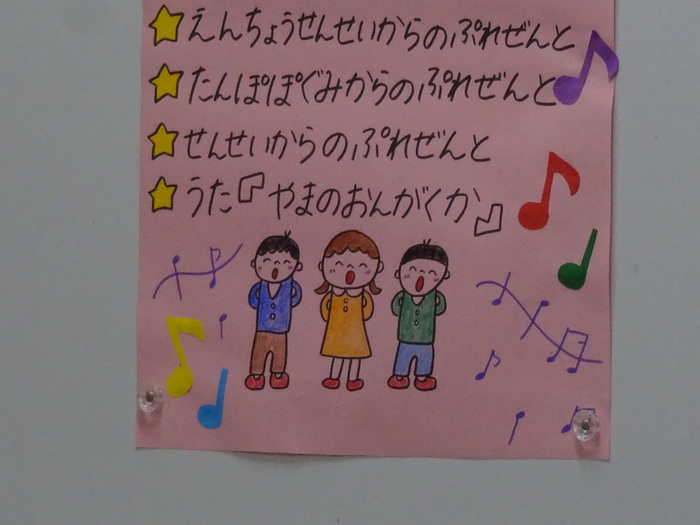 えんちょうせんせいからのぷれぜんと
たんぽぽぐみからのぷれぜんと
せんせいからのぷれぜんと
うた『やまのおんがくか』